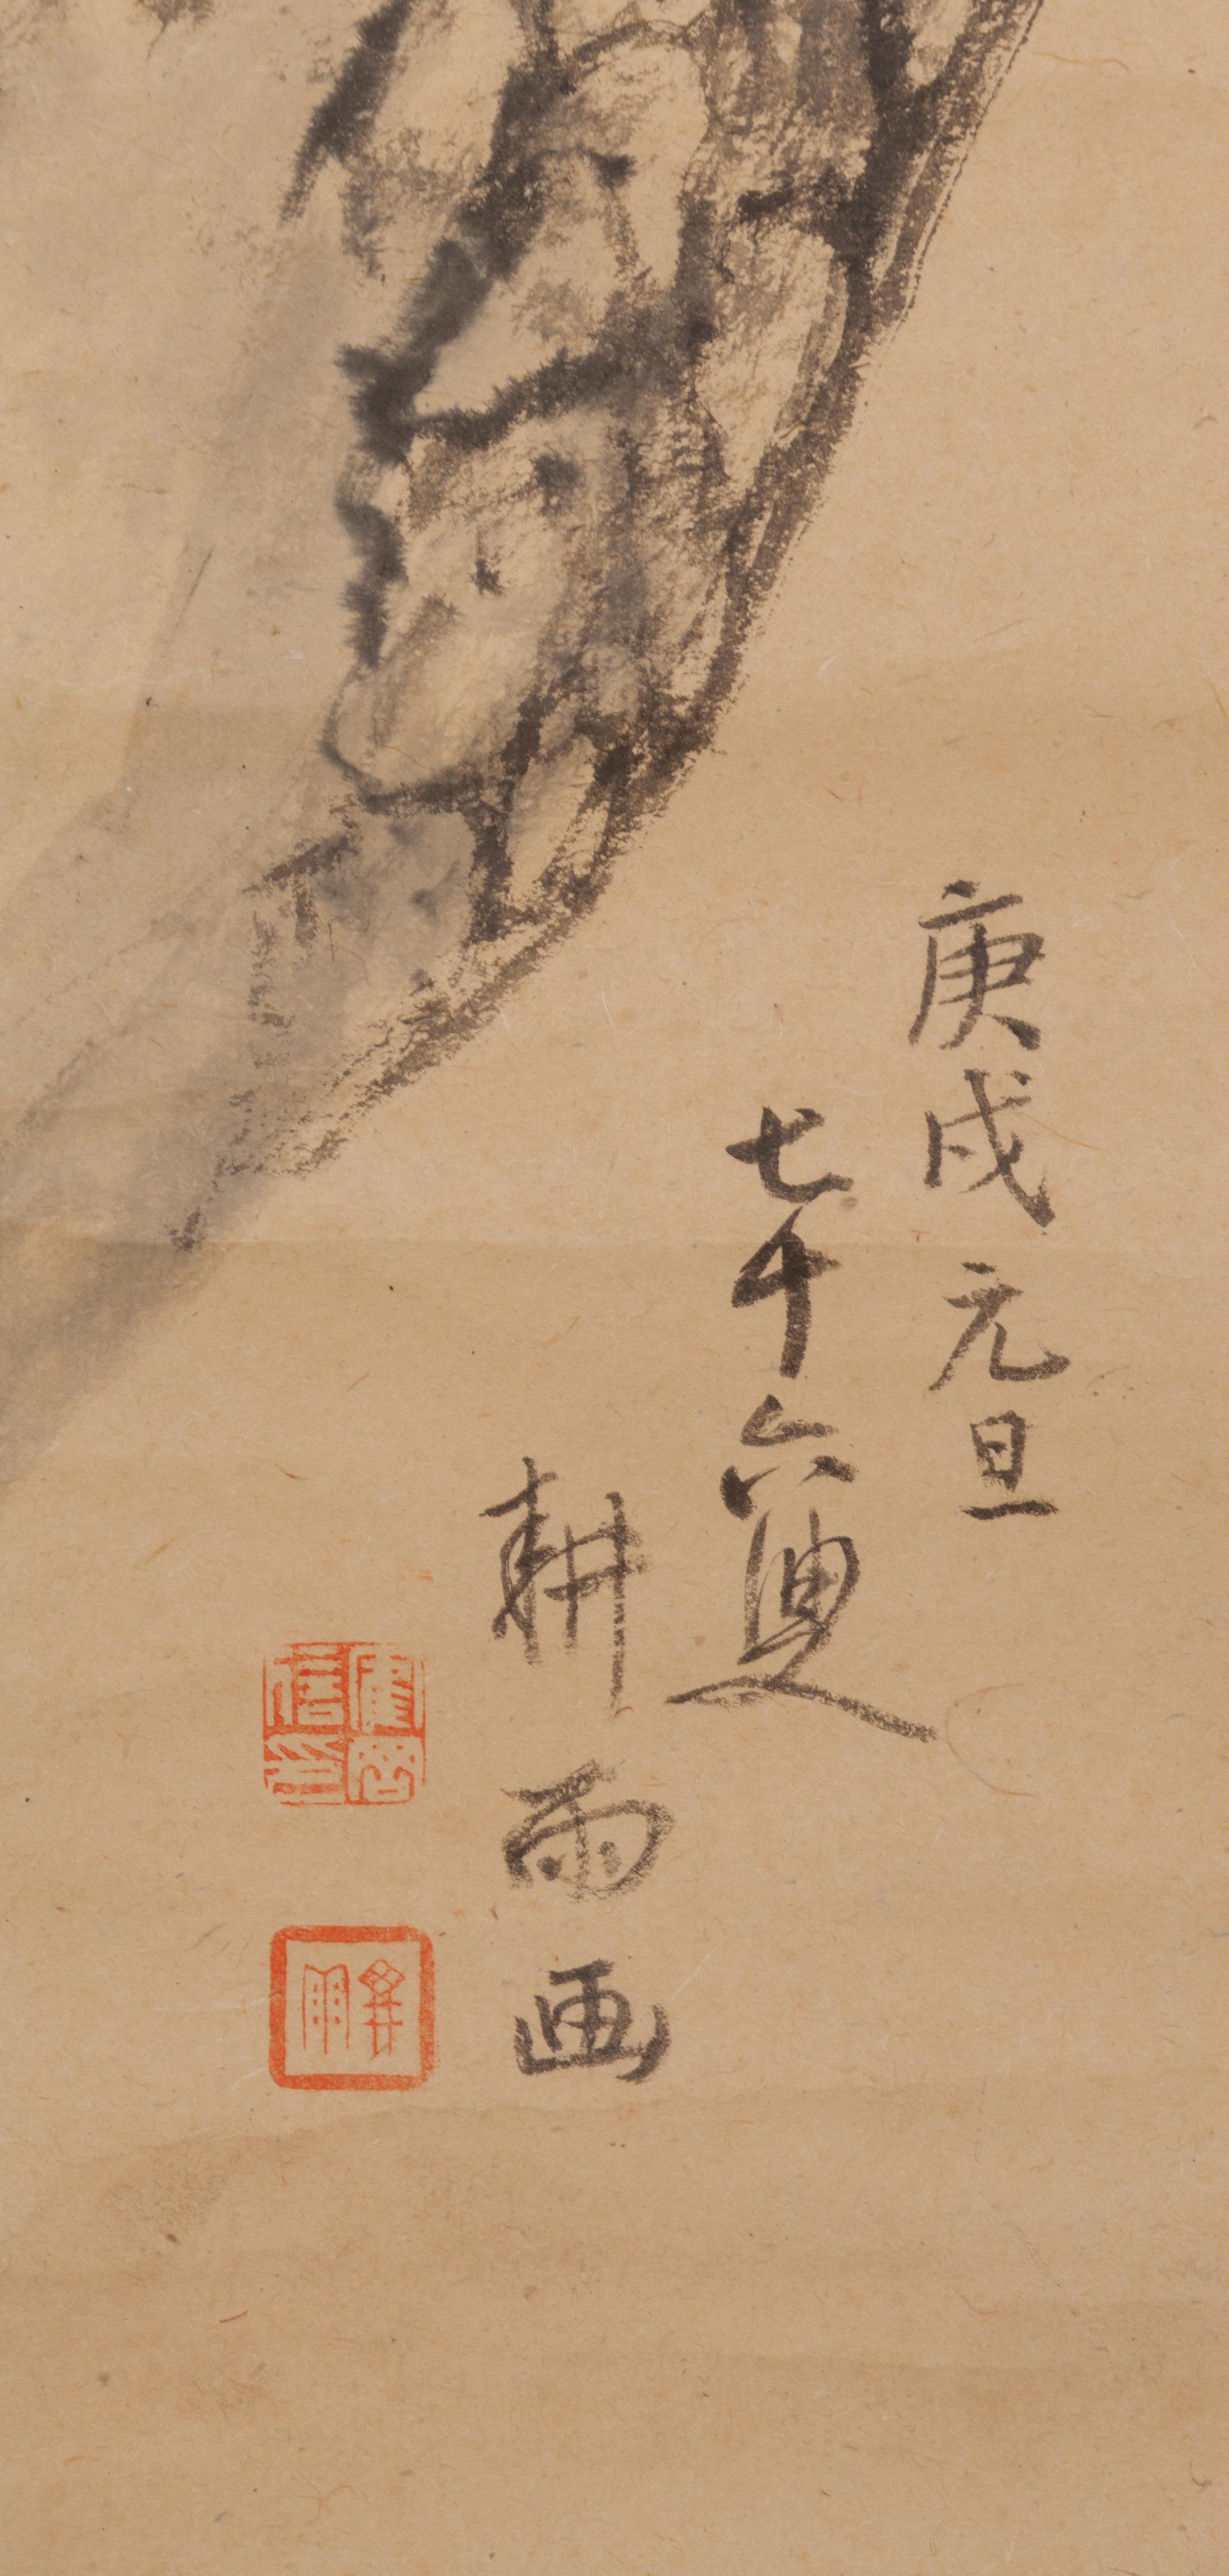 庚戌元旦
七十六叟
耕雨画
耕雨